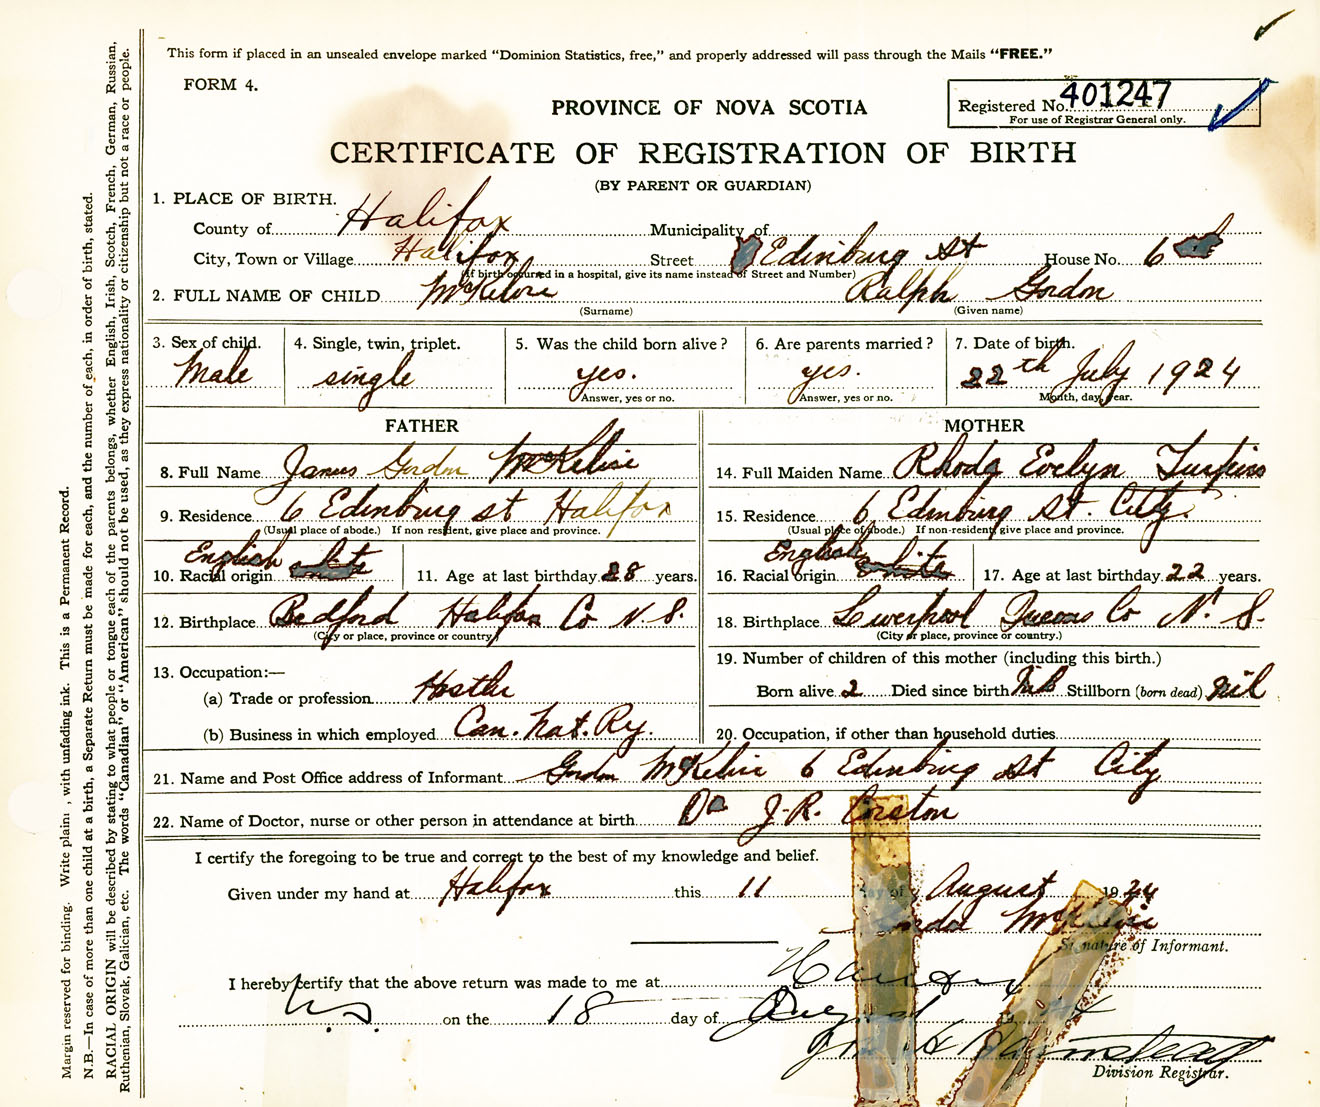 This form if placed in an unsealed envelope marked "Dominion Statistics, free," and properly addressed will pass through the Mails "FREE."
FORM 4.
Registered No. 401247
For use of Registrar General only.
PROVINCE OF NOVA SCOTIA
CERTIFICATE OF REGISTRATION OF BIRTH
(BY PARENT OR GUARDIAN)
1. PLACE OF BIRTH.
County of Halifax Municipality of
City, Town or Village Halifax Street Edinburg St House No. 6
(If birth occurred in a hospital, give its name instead of Street and Number)
2. FULL NAME OF CHILD McKelvie Ralph Gordon
(Surname) (Given name)
3. Sex of child. 4. Single, twin, triplet. 5. Was the child born alive? 6. Are parents married? 7. Date of birth.
Male single yes. yes. 22th July 1924
Answer, yes or no. Answer, yes or no. Month, day, year.
FATHER MOTHER
8. Full Name James Gordon McKelvie 14. Full Maiden Name Rhoda Evelyn
9. Residence 6 Edinburg st Halifax 15. Residence 6 Edinburg St. City.
(Usual place of abode.) If non resident, give place and province. (Usual place of abode.) If non-resident, give place and province.
English English
10. Racial origin white 11. Age at last birthday 28 years. 16. Racial origin white 17. Age at last birthday 22 years.
12. Birthplace Bedford Halifax Co N.S. 18. Birthplace Liverpool Queens Co N. S.
(City or place, province or country) (City or place, province or country.)
13. Occupation:— 19. Number of children of this mother (including this birth.)
(a) Trade or profession Hostler Born alive 2 Died since birth Nil Stillborn (born dead) nil
(b) Business in which employed Can. Nat. Ry. 20. Occupation, if other than household duties
21. Name and Post Office address of Informant Gordon McKelvie 6 Edinburg St City
22. Name of Doctor, nurse or other person in attendance at birth Dr J. R. Corston
I certify the foregoing to be true and correct to the best of my knowledge and belief.
Given under my hand at Halifax this 11 day of August 1924
McKelvie
Signature of Informant.
I hereby certify that the above return was made to me at Halifax
N.S. on the 18 day of August
Division Registrar.
Margin reserved for binding. Write plain , with unfading ink. This is a Permanent Record.
N.B.—In case of more than one child at a birth, a Separate Return must be made for each, and the number of each, in order of birth, stated.
RACIAL ORIGIN will be described by stating to what people or tongue each of the parents belongs, whether English, Irish, Scotch, French, German, Russian,
Ruthenian, Slovak, Galician, etc. The words "Canadian" or "American" should not be used, as they express nationality or citizenship but not a race or people.